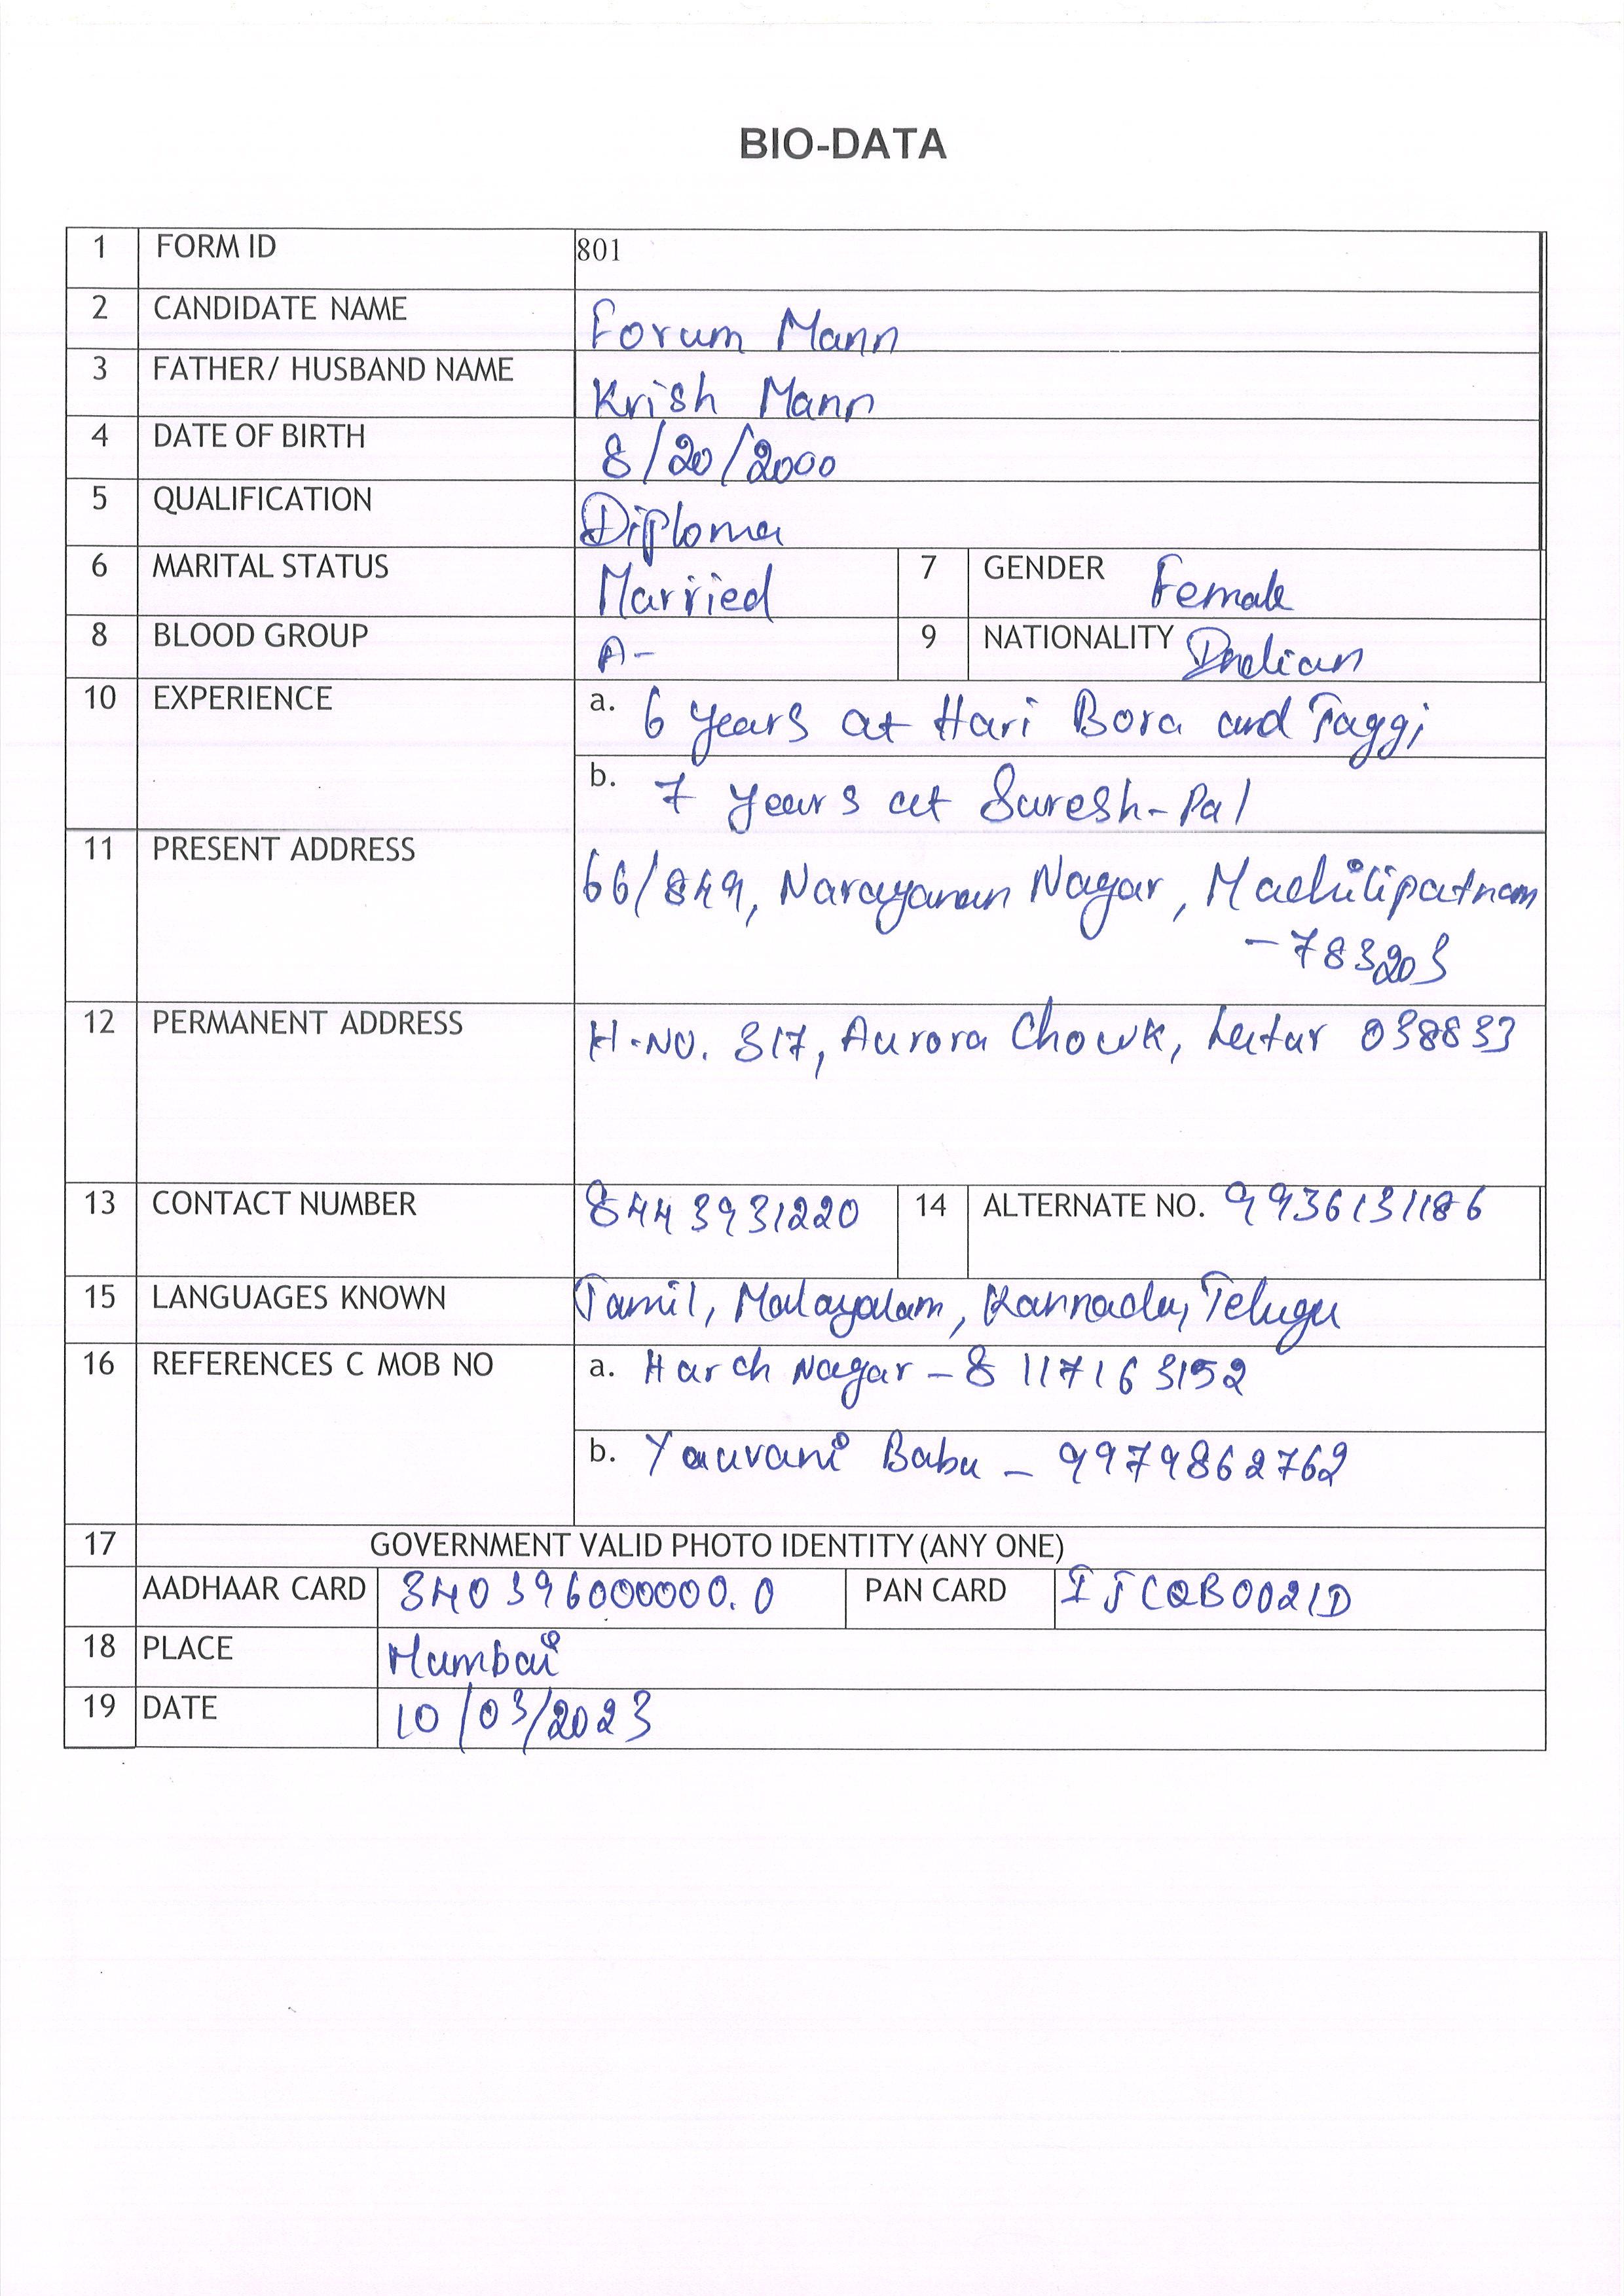 BIO-DATA
1 FORM ID 801
2 CANDIDATE NAME Forum Mann
3 FATHER/ HUSBAND NAME Krish Mann
4 DATE OF BIRTH 8/20/2000
5 QUALIFICATION Diploma
6 MARITAL STATUS Married 7 GENDER Female
8 BLOOD GROUP A- 9 NATIONALITY Indian
10 EXPERIENCE a. 6 years at Hari Bora and Taggi
b. 7 years at Suresh-Pal
11 PRESENT ADDRESS 66/849, Narayanan Nagar, Machilipatnam
- 783203
12 PERMANENT ADDRESS H.NO. 317, Aurora Chowk, Latur 038833
13 CONTACT NUMBER 8443931220 14 ALTERNATE NO. 9936131186
15 LANGUAGES KNOWN Tamil, Malayalam, Kannada, Telugu
16 REFERENCES C MOB NO a. Harch Nagar - 8117163152
b. Yauvani Babu - 9979862762
17 GOVERNMENT VALID PHOTO IDENTITY (ANY ONE)
AADHAAR CARD 340396000000.0 PAN CARD IJCQB0021D
18 PLACE Mumbai
19 DATE 10/03/2023